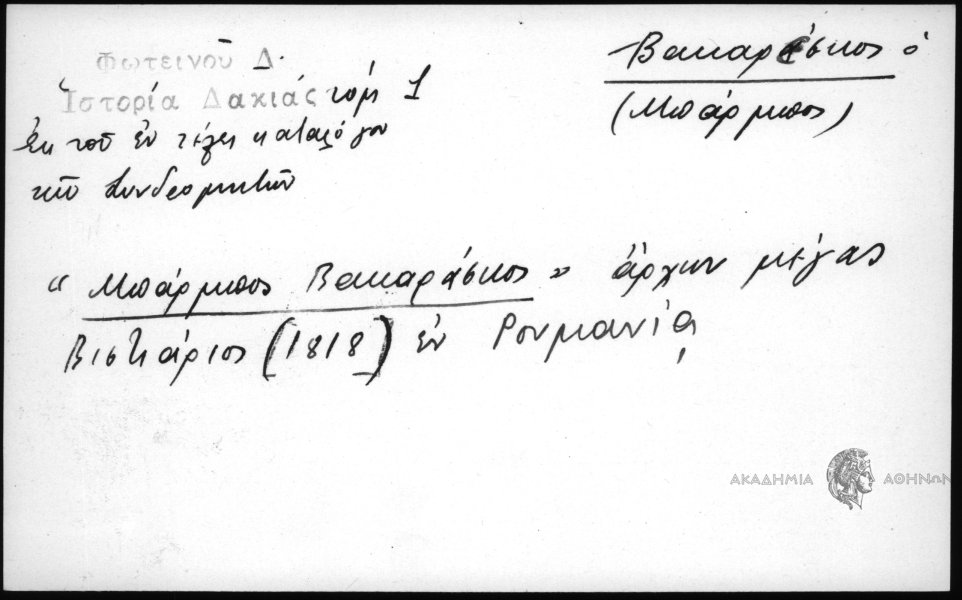 Φωτεινοῦ Δ.
Ἱστορία Δακίας τόμ 1
Ἐκ τοῦ ἐν τέλει καταλόγου
τῶν Συνδρομητῶν
Βακαρέσκος ὁ
(Μπάρμπος)
“Μπάρμπος Βακαρέσκος” ἄρχων μέγας
Βιστιάριος (1818) ἐν Ρουμανίᾳ
ΑΚΑΔΗΜΙΑ ΑΘΗΝΩΝ